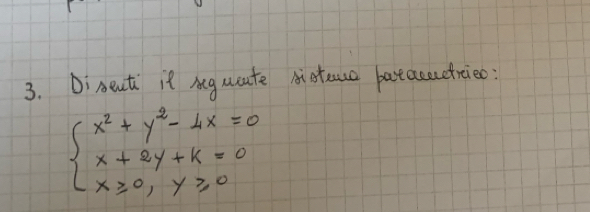 3. Discuti il seguente sistema parametrico:
x² + y² - 4x = 0
x + 2y + k = 0
x ≥ 0, y ≥ 0